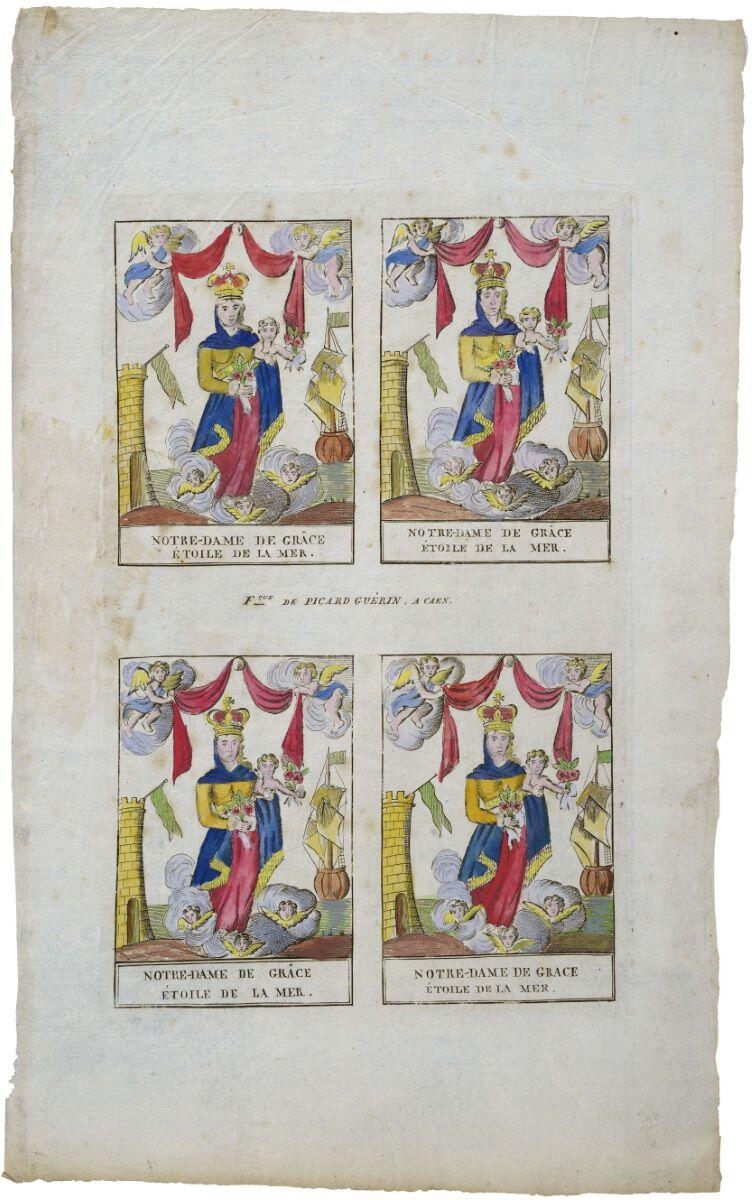 NOTRE-DAME DE GRÂCE
ÉTOILE DE LA MER.
NOTRE-DAME DE GRÂCE
ÉTOILE DE LA MER.
Fque DE PICARD GUÉRIN, A CAEN.
NOTRE-DAME DE GRÂCE
ÉTOILE DE LA MER.
NOTRE-DAME DE GRACE
ÉTOILE DE LA MER.